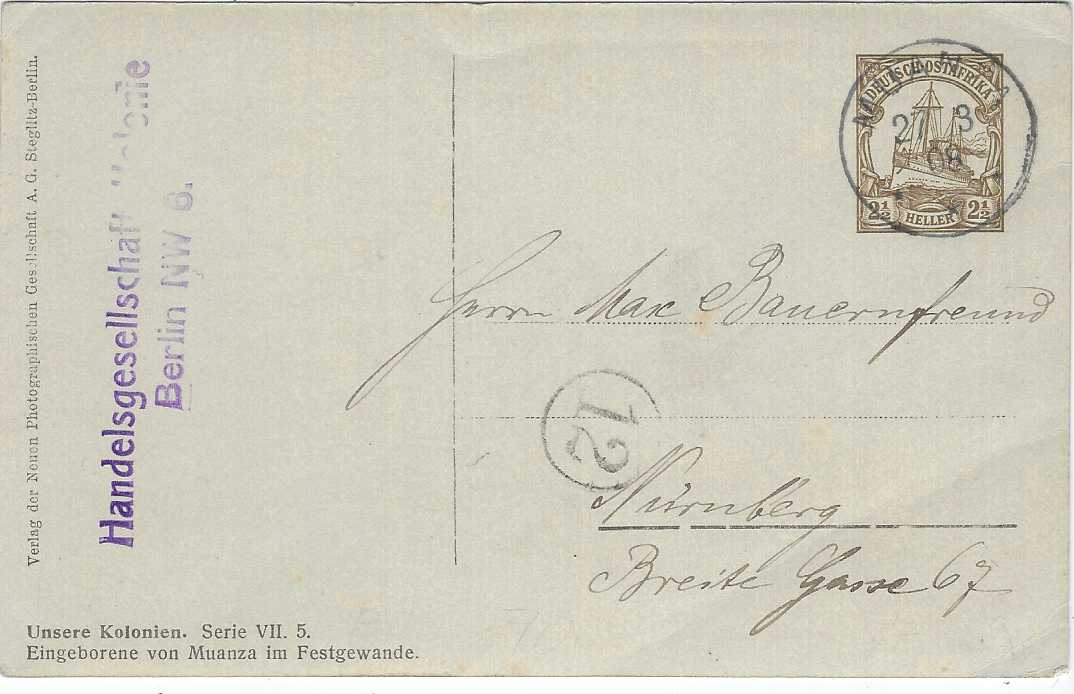 Verlag der Neuen Photographischen Gesellschaft A. G. Steglitz-Berlin.
Handelsgesellschaft Kolonie
Berlin NW 6.
DEUTSCH-OSTAFRIKA
2½ HELLER 2½
MUANZA
27 3
08
Herrn Max Bauernfreund
12
Nürnberg
Breite Gasse 67
Unsere Kolonien. Serie VII. 5.
Eingeborene von Muanza im Festgewande.